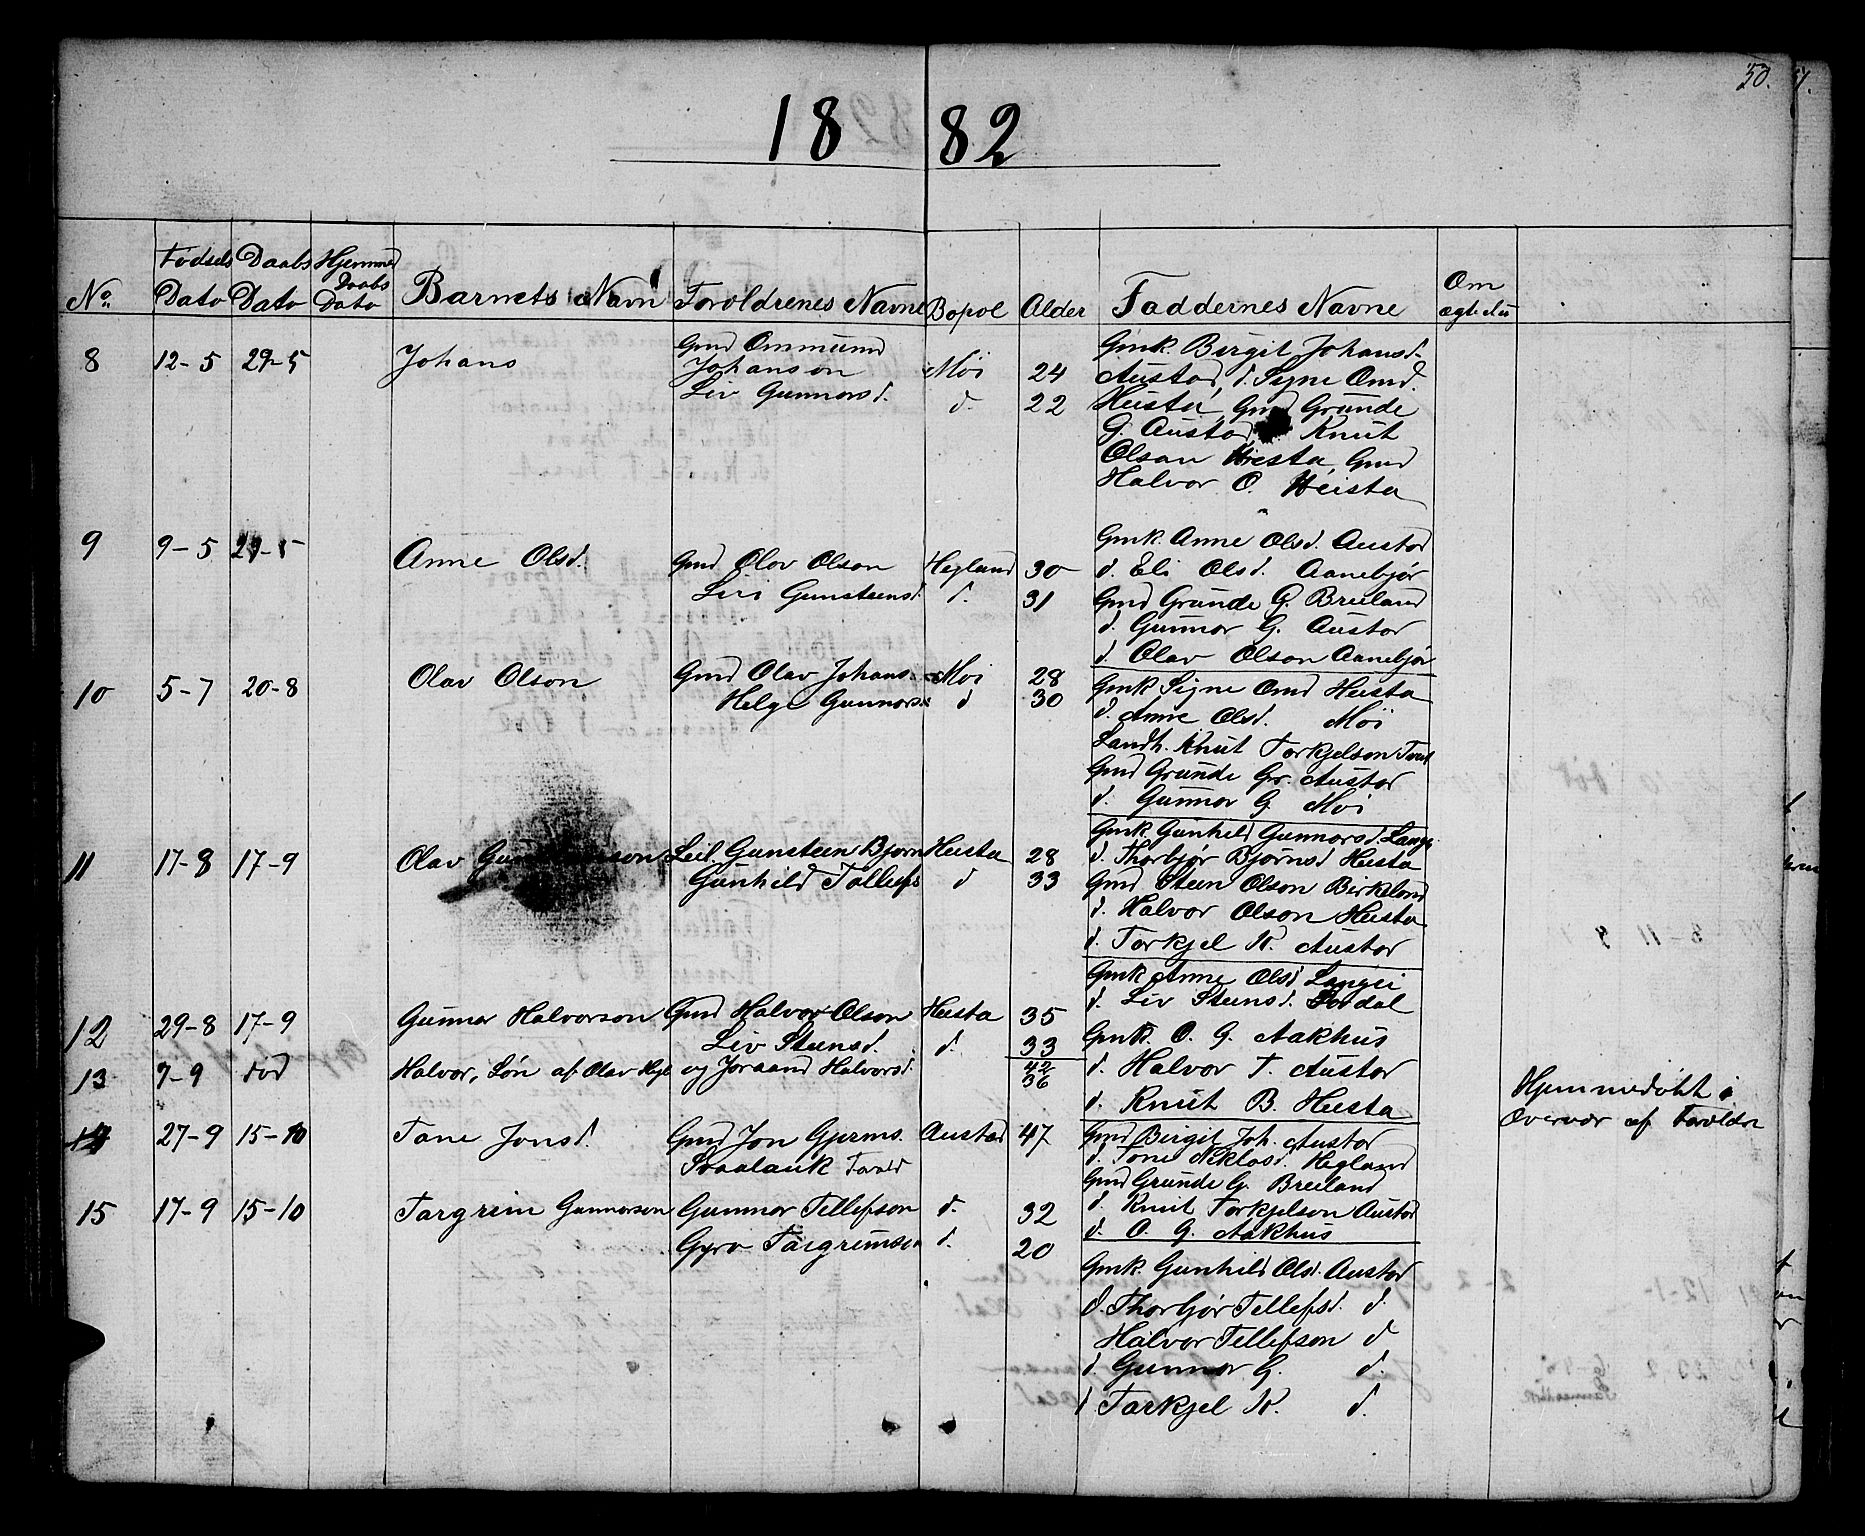 50.
1882
No. Fødsels Dato Daabs Dato Hjemme Daabs Dato Barnets Navn Foroldrenes Navne Bopoe Alder Faddernes Navne Om
8 12-5 29-5 Johans Gmd Ommund Johanson Moi 24
Liv Gunnorsd. d. 22
Gmk. Birgit Johansd.
Austad, d. Signe Omd.
Heista, Gmd Grunde
G. Austad, Knut
Olson Hiesta, Gmd
Halvor O. Heista
9 9-5 29-5 Anne Olsd. Gmd Olov Olson Hegland 30
Liv Gunsteensd. d. 31
Gmk. Anne Olsd. Austad
d. Eli Olsd. Aanebjør
Gmd Grunde G. Breiland
d. Gunnor G. Austor
d. Olav Olson Aanebjør
10 5-7 20-8 Olav Olson Gmd Olav Johans. Moi 28
Helge Gunnors d 30
Gmk Signe Omd Heista
d. Anne Olsd. Moi
Landh. Knut Torkjelson
Gmd Grunde Gr. Austor
d. Gunnor G. Moi
11 17-8 17-9 Olav Leil. Gunsteen Bjorn Heista 28
Gunhild Tollefs d 33
Gmk. Gunhild Gunnorsd. Langei
d. Thorbjør Bjørnsd Heista
Gmd Steen Olson Birkeland
d. Halvor Olson Heista
d. Torkjel K. Austor
12 29-8 17-9 Gunnor Halvorson Gmd Halvor Olson Heista 35
Liv Steensd. d. 33
Gmk Anne Olsd Langei
d. Liv Steensd.
Gmk. O. G. Aakhus
d. Halvor T. Austor
d. Knut B. Heista
13 7-9 død Halvor, Søn af Olav Hegl og Joraand Halvorsd. 42
36
Hjemmedøbt i
Overvær af Foroldre
14 27-9 15-10 Tone Jonsd. Gmd Jon Gjerms. Austad 47
Svaalauk
Gmd Birgit Joh. Austor
d. Tone Niklosd. Hegland
Gmd Grunde G. Breiland
d. Knut Torkjelson Austad
d. O. G. Aakhus
15 17-9 15-10 Targrim Gunnorson Gunnor Tellefson d. 32
Gyro Targrimsd d. 20
Gmk. Gunhild Olsd. Austor
d. Thorbjør Tellefsd. d.
Halvor Tellefson d
d. Gunnor G. d.
d Torkjel K. d.